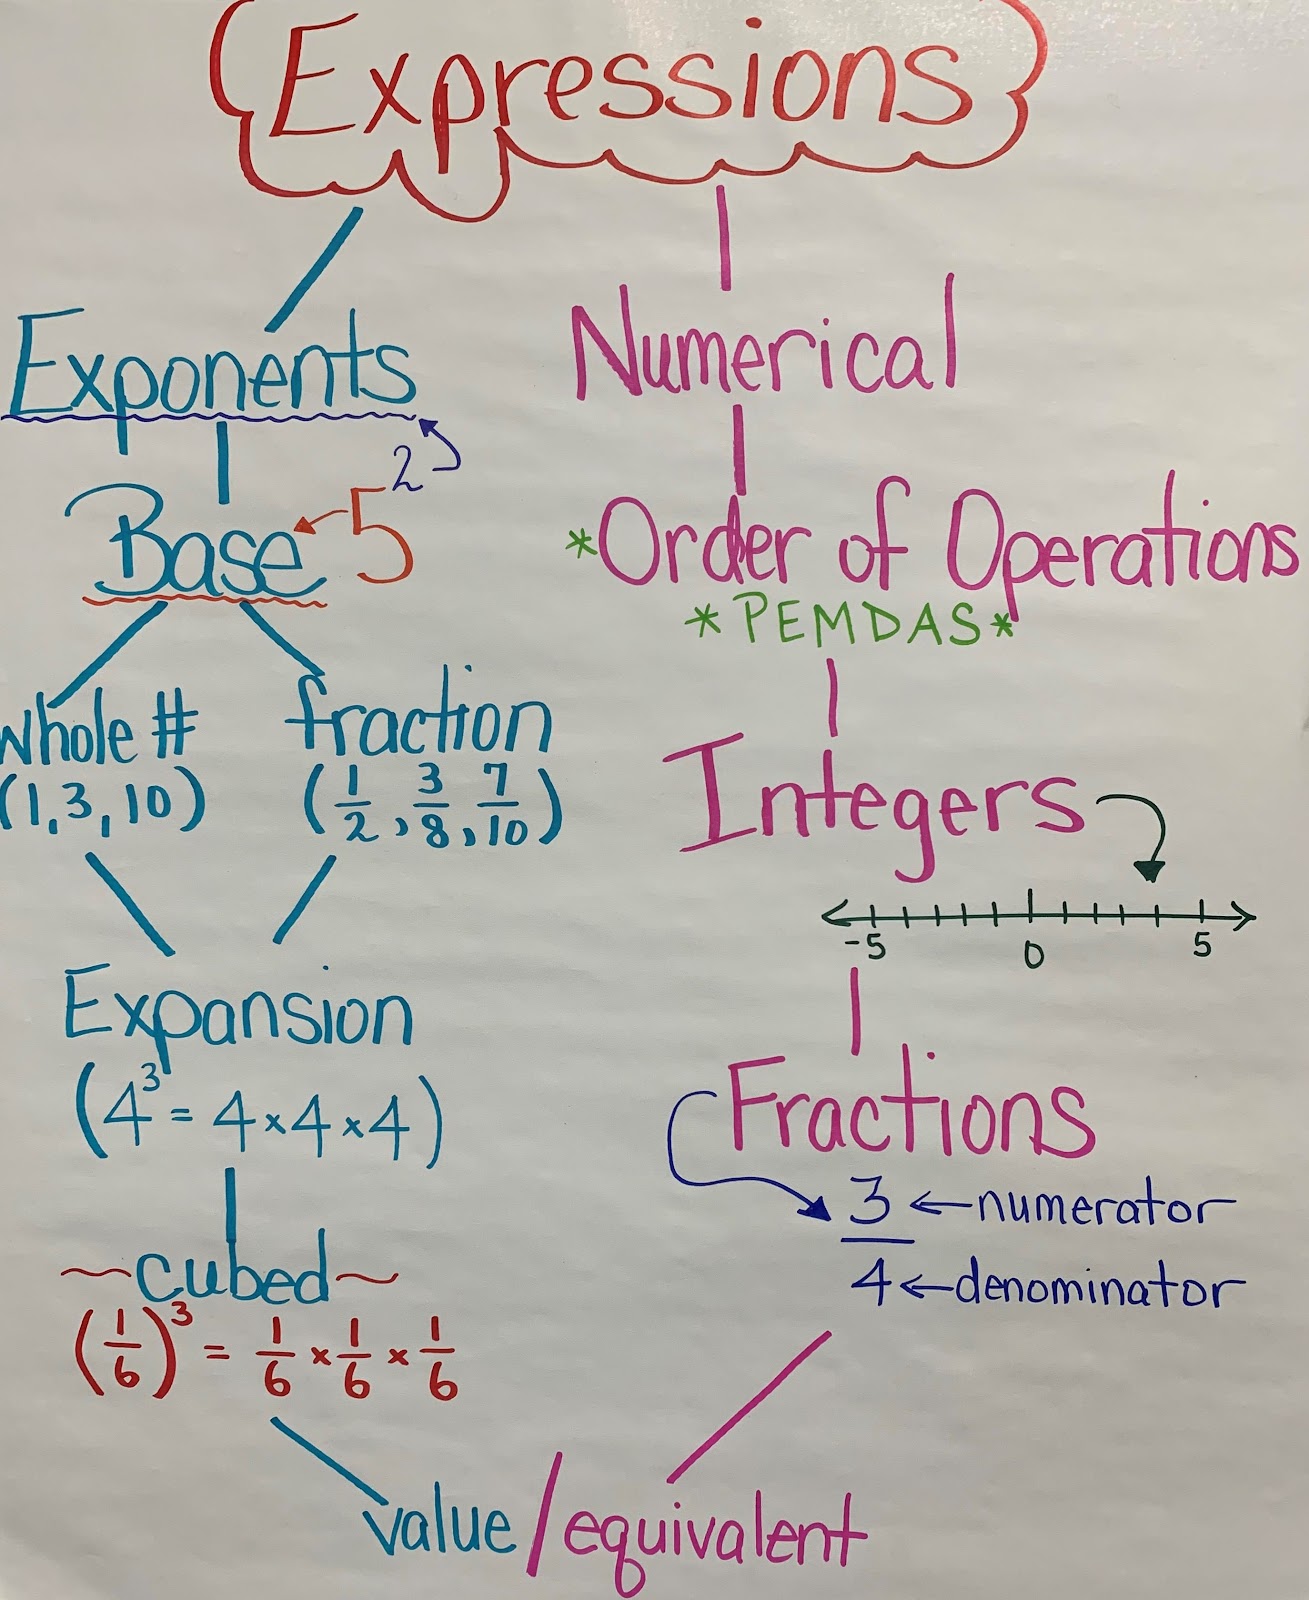 Expressions
Exponents
5²
Base
whole #
(1, 3, 10)
fraction
(1/2, 3/8, 7/10)
Expansion
(4³ = 4 x 4 x 4)
~cubed~
(1/6)³ = 1/6 x 1/6 x 1/6
Numerical
*Order of Operations
*PEMDAS*
Integers
-5 0 5
Fractions
3 ← numerator
4 ← denominator
value/equivalent